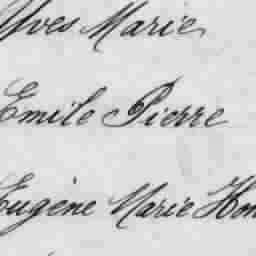 Yves Marie
Emile Pierre
Eugène Marie Hon